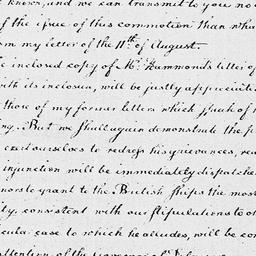 known, and we can transmit to you no
of the issue of this commotion than wha
om my letter of the 11th of August.
e inclosed copy of Mr. Hammond's letter of
with its inclosure, will be justly appreciated
those of my former letters which speak of
ng. But we shall again demonstrate the
ceed ourselves to redress his grievances, rea
injunction will be immediately dispatche
nors to grant to the British ships the most
ty, consistent with our stipulations to ot
cular case to which he alludes, will be con
attention of the governor of